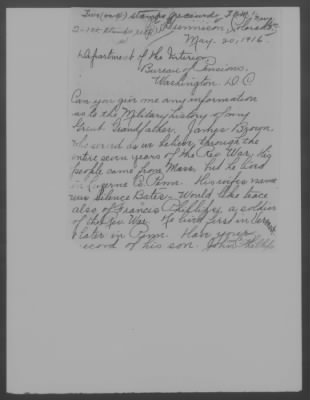 Two (2 c) stamps received
2-1ct stamps Gunnison, Colorado
May. 20, 1916
Department of the Interior
Bureau of Pensions.
Washington D.C.
Can you give me any information
as to the Military history of my
Great Grandfather. James Brown.
who served as we believe through the
entire seven years of the Rev War. His
people came from Mass. but he lived
in Luzerne Co Penn. His wife's name
was Silence Bates. Would like trace
also of Francis Phillips, a soldier
of the Rev War. He lived first in
& later in Penn. Have you
record of his son. John Phillips